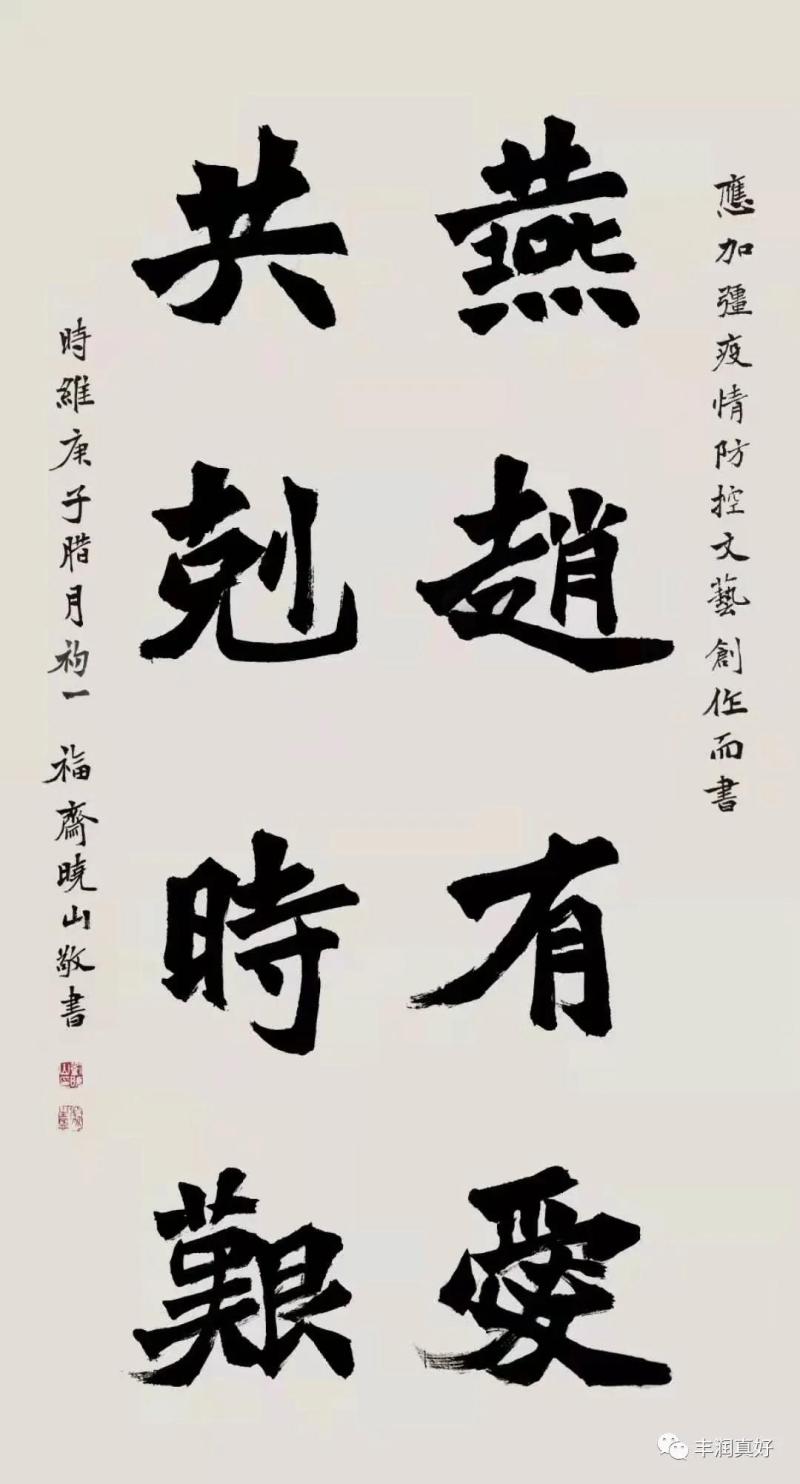 應加彊疫情防控文藝創作而書
燕趙有愛
共剋時艱
時維庚子腊月初一 福齋曉山敬書
丰润真好